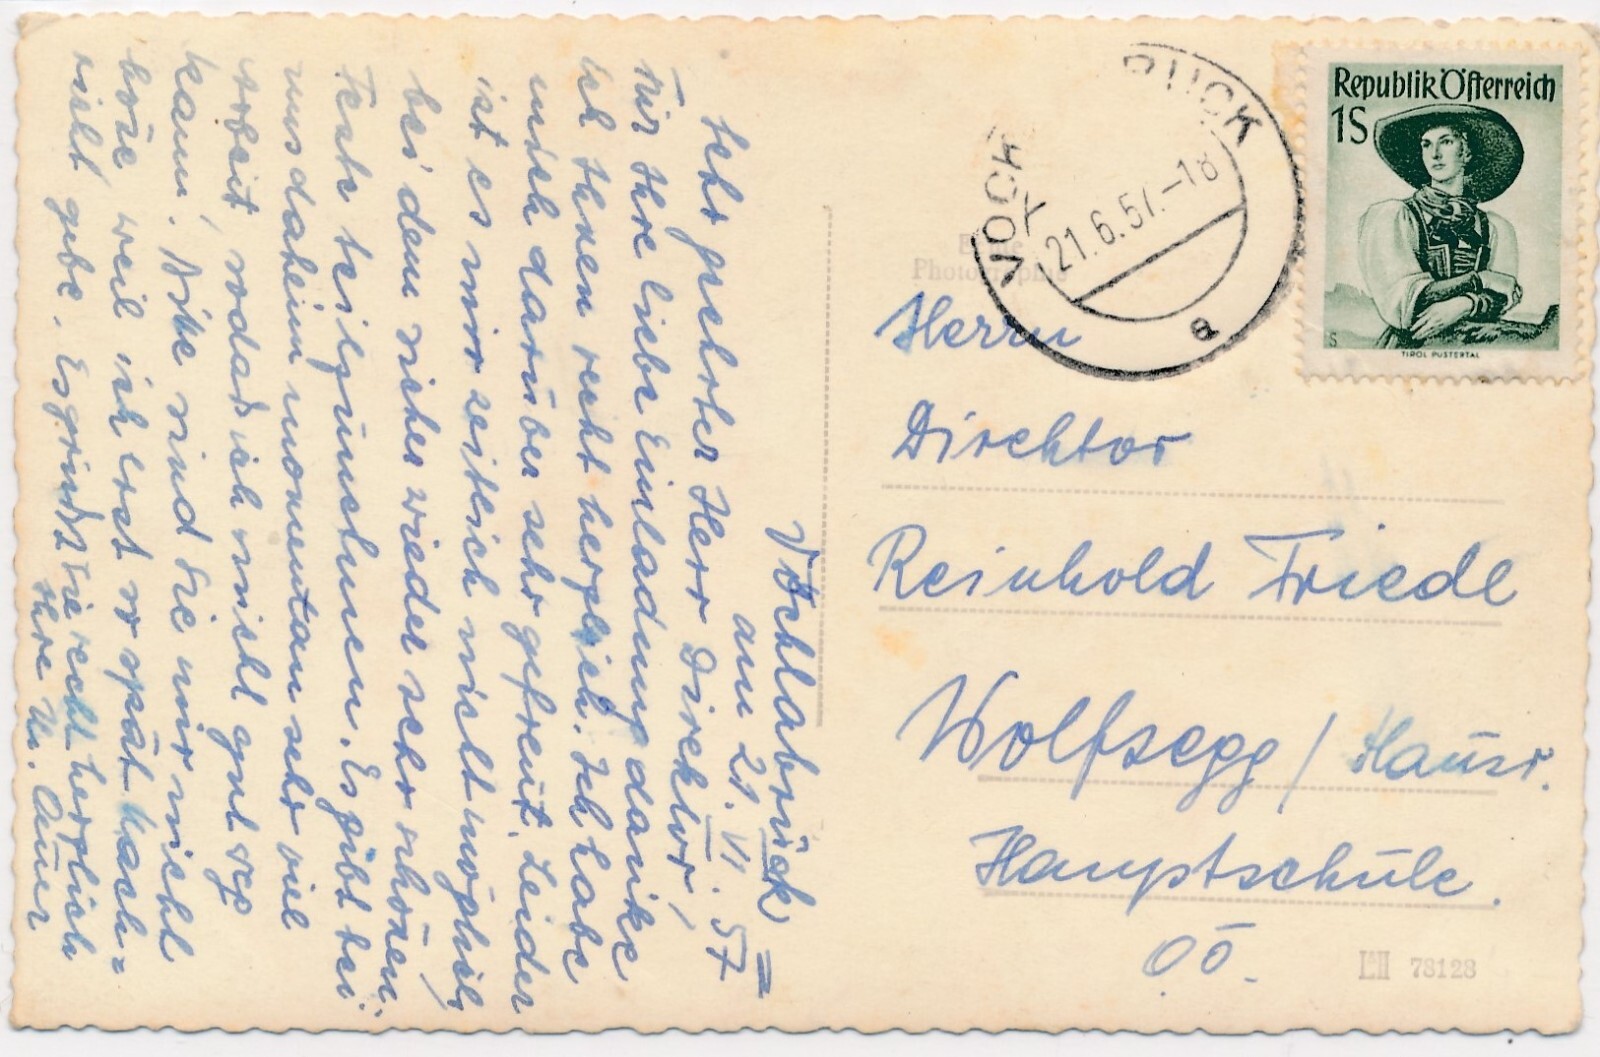 Vöcklabrück
am 21. VI. 57
Sehr geehrter Herr Direktor,
Für Ihre liebe Einladung danke
ich Ihnen recht herzlich. Ich habe
mich darüber sehr gefreut. Leider
ist es mir zeitlich nicht möglich,
bei dem sicher wieder sehr schönen
Feste teilzunehmen. Es gibt bei
uns daheim momentan sehr viel
Arbeit, sodaß ich nicht gut weg
kann. Bitte sind Sie mir nicht
böse weil ich erst so spät Nach=
richt gebe. Es grüßt Sie recht herzlich
Ihre
Republik Österreich
1S
TIROL PUSTERTAL
VÖCK BRUCK
21.6.57.-18
a
Echte
Photographie
Herrn
Direktor
Reinhold Friedl
Wolfsegg / Hausr.
Hauptschule.
OÖ.
78128